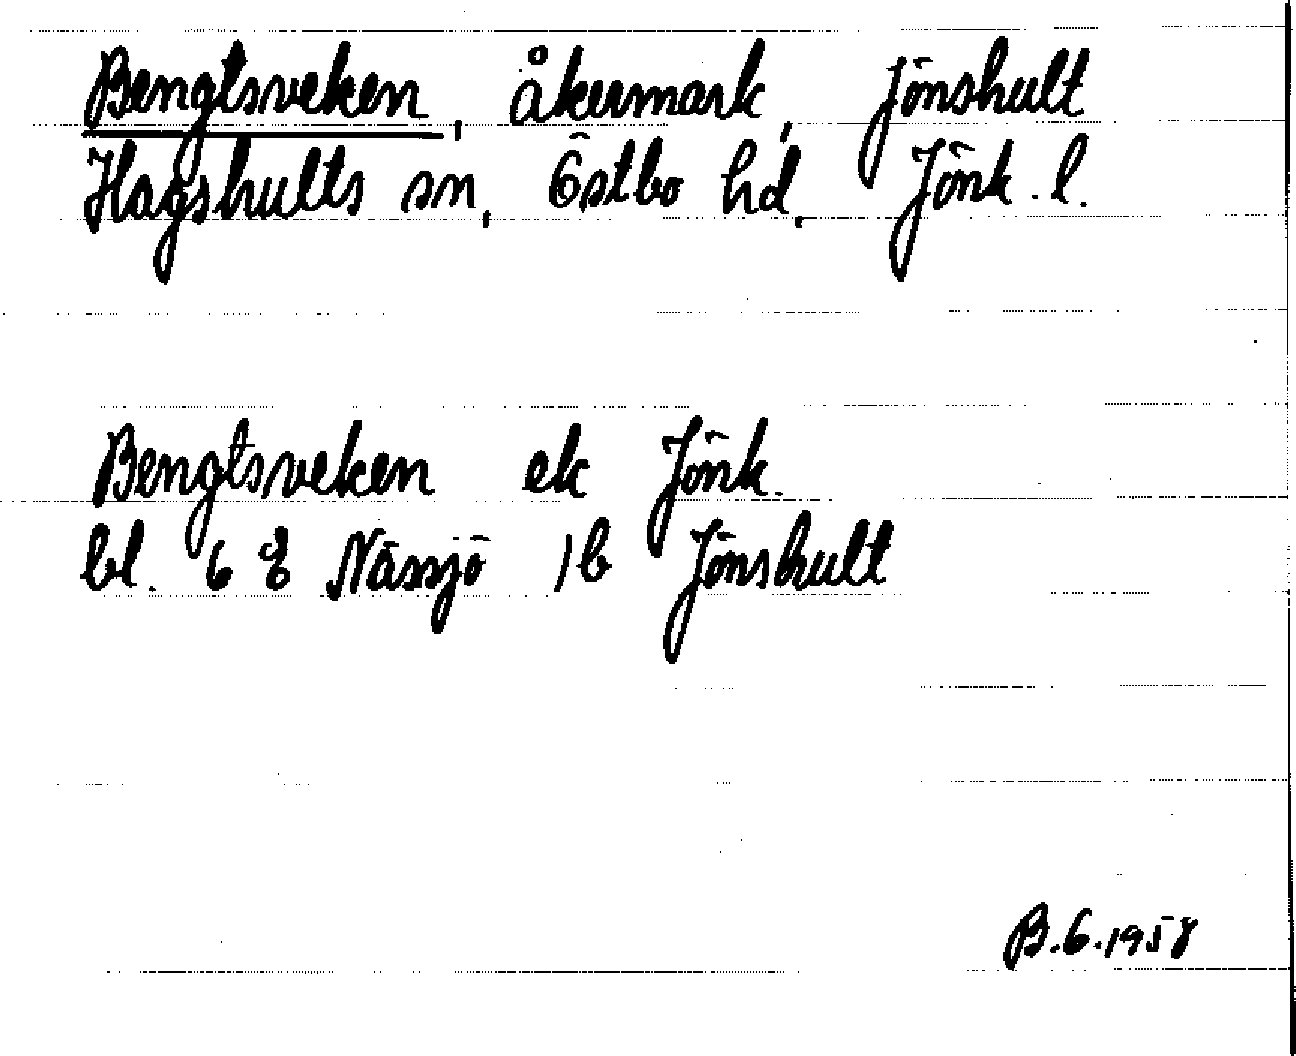 Bengtsveken, åkermark, Jönshult
Hagshults sn, Östbo hd, Jönk. l.
Bengtsveken ek Jönk.
bl. 6 8 Nässjö 1b Jönshult
B.G.1958